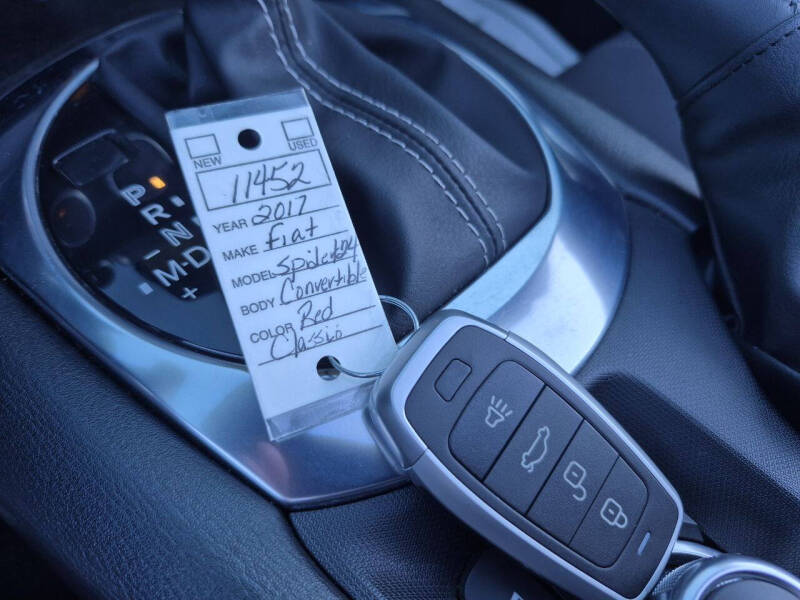 NEW USED
11452
YEAR 2017
MAKE Fiat
MODEL Spider124
BODY Convertible
COLOR Red
Classic
P
R
N
M-D
+